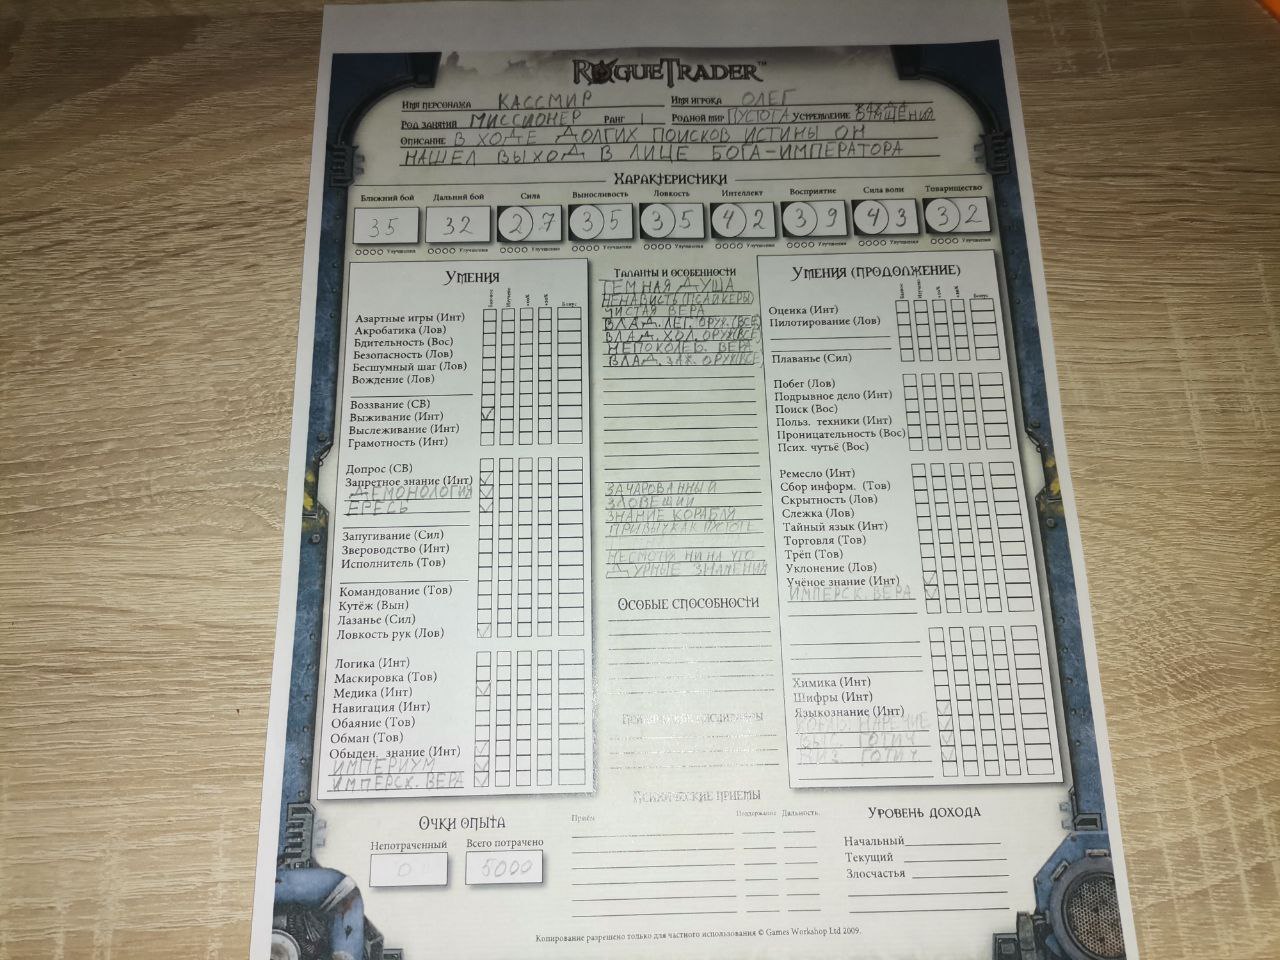 ROGUE TRADER™
Имя персонажа КАССМИР Имя игрока ОЛЕГ
Род занятий МИССИОНЕР Ранг 1 Родной мир ПУСТОТА Устремление
Описание В ХОДЕ ДОЛГИХ ПОИСКОВ ИСТИНЫ ОН
НАШЕЛ ВЫХОД В ЛИЦЕ БОГА-ИМПЕРАТОРА
Характеристики
Ближний бой Дальний бой Сила Выносливость Ловкость Интеллект Восприятие Сила воли Товарищество
35 32 27 35 35 42 39 43 32
Улучшения Улучшения Улучшения Улучшения Улучшения Улучшения Улучшения Улучшения Улучшения
Умения
Азартные игры (Инт)
Акробатика (Лов)
Бдительность (Вос)
Безопасность (Лов)
Бесшумный шаг (Лов)
Вождение (Лов)
Воззвание (СВ)
Выживание (Инт)
Выслеживание (Инт)
Грамотность (Инт)
Допрос (СВ)
Запретное знание (Инт)
ДЕМОНОЛОГИЯ
ЕРЕСЬ
Запугивание (Сил)
Звероводство (Инт)
Исполнитель (Тов)
Командование (Тов)
Кутёж (Вын)
Лазанье (Сил)
Ловкость рук (Лов)
Логика (Инт)
Маскировка (Тов)
Медика (Инт)
Навигация (Инт)
Обаяние (Тов)
Обман (Тов)
Обыден. знание (Инт)
ИМПЕРИУМ
ИМПЕРСК. ВЕРА
Таланты и особенности
ТЕМНАЯ ДУША
НЕНАВИСТЬ (ПСАЙКЕРЫ)
ЧИСТАЯ ВЕРА
ВЛАД. ЛЕГ. ОРУЖ. (ВСЕ)
ВЛАД. ХОЛ. ОРУЖ (ВСЕ)
НЕПОКОЛЕБ. ВЕРА
ВЛАД. ЗАЖ. ОРУЖ (ВСЕ)
ЗАЧАРОВАННЫЙ
ЗЛОВЕЩИЙ
ЗНАНИЕ КОРАБЛЯ
ПРИВЫЧКА К ПУСТОТЕ
НЕСМОТРЯ НИ НА ЧТО
ДУРНЫЕ ЗНАМЕНИЯ
Особые способности
Психические приемы
Приём Поддержание Дальность
Умения (продолжение)
Оценка (Инт)
Пилотирование (Лов)
Плаванье (Сил)
Побег (Лов)
Подрывное дело (Инт)
Поиск (Вос)
Польз. техники (Инт)
Проницательность (Вос)
Псих. чутьё (Вос)
Ремесло (Инт)
Сбор информ. (Тов)
Скрытность (Лов)
Слежка (Лов)
Тайный язык (Инт)
Торговля (Тов)
Трёп (Тов)
Уклонение (Лов)
Учёное знание (Инт)
ИМПЕРСК. ВЕРА
Химика (Инт)
Шифры (Инт)
Языкознание (Инт)
КОРАБ. НАРЕЧИЕ
ВЫС. ГОТИЧ
НИЗ. ГОТИЧ
Очки опыта
Непотраченный Всего потрачено
0 5000
Уровень дохода
Начальный
Текущий
Злосчастья
Копирование разрешено только для частного использования © Games Workshop Ltd 2009.